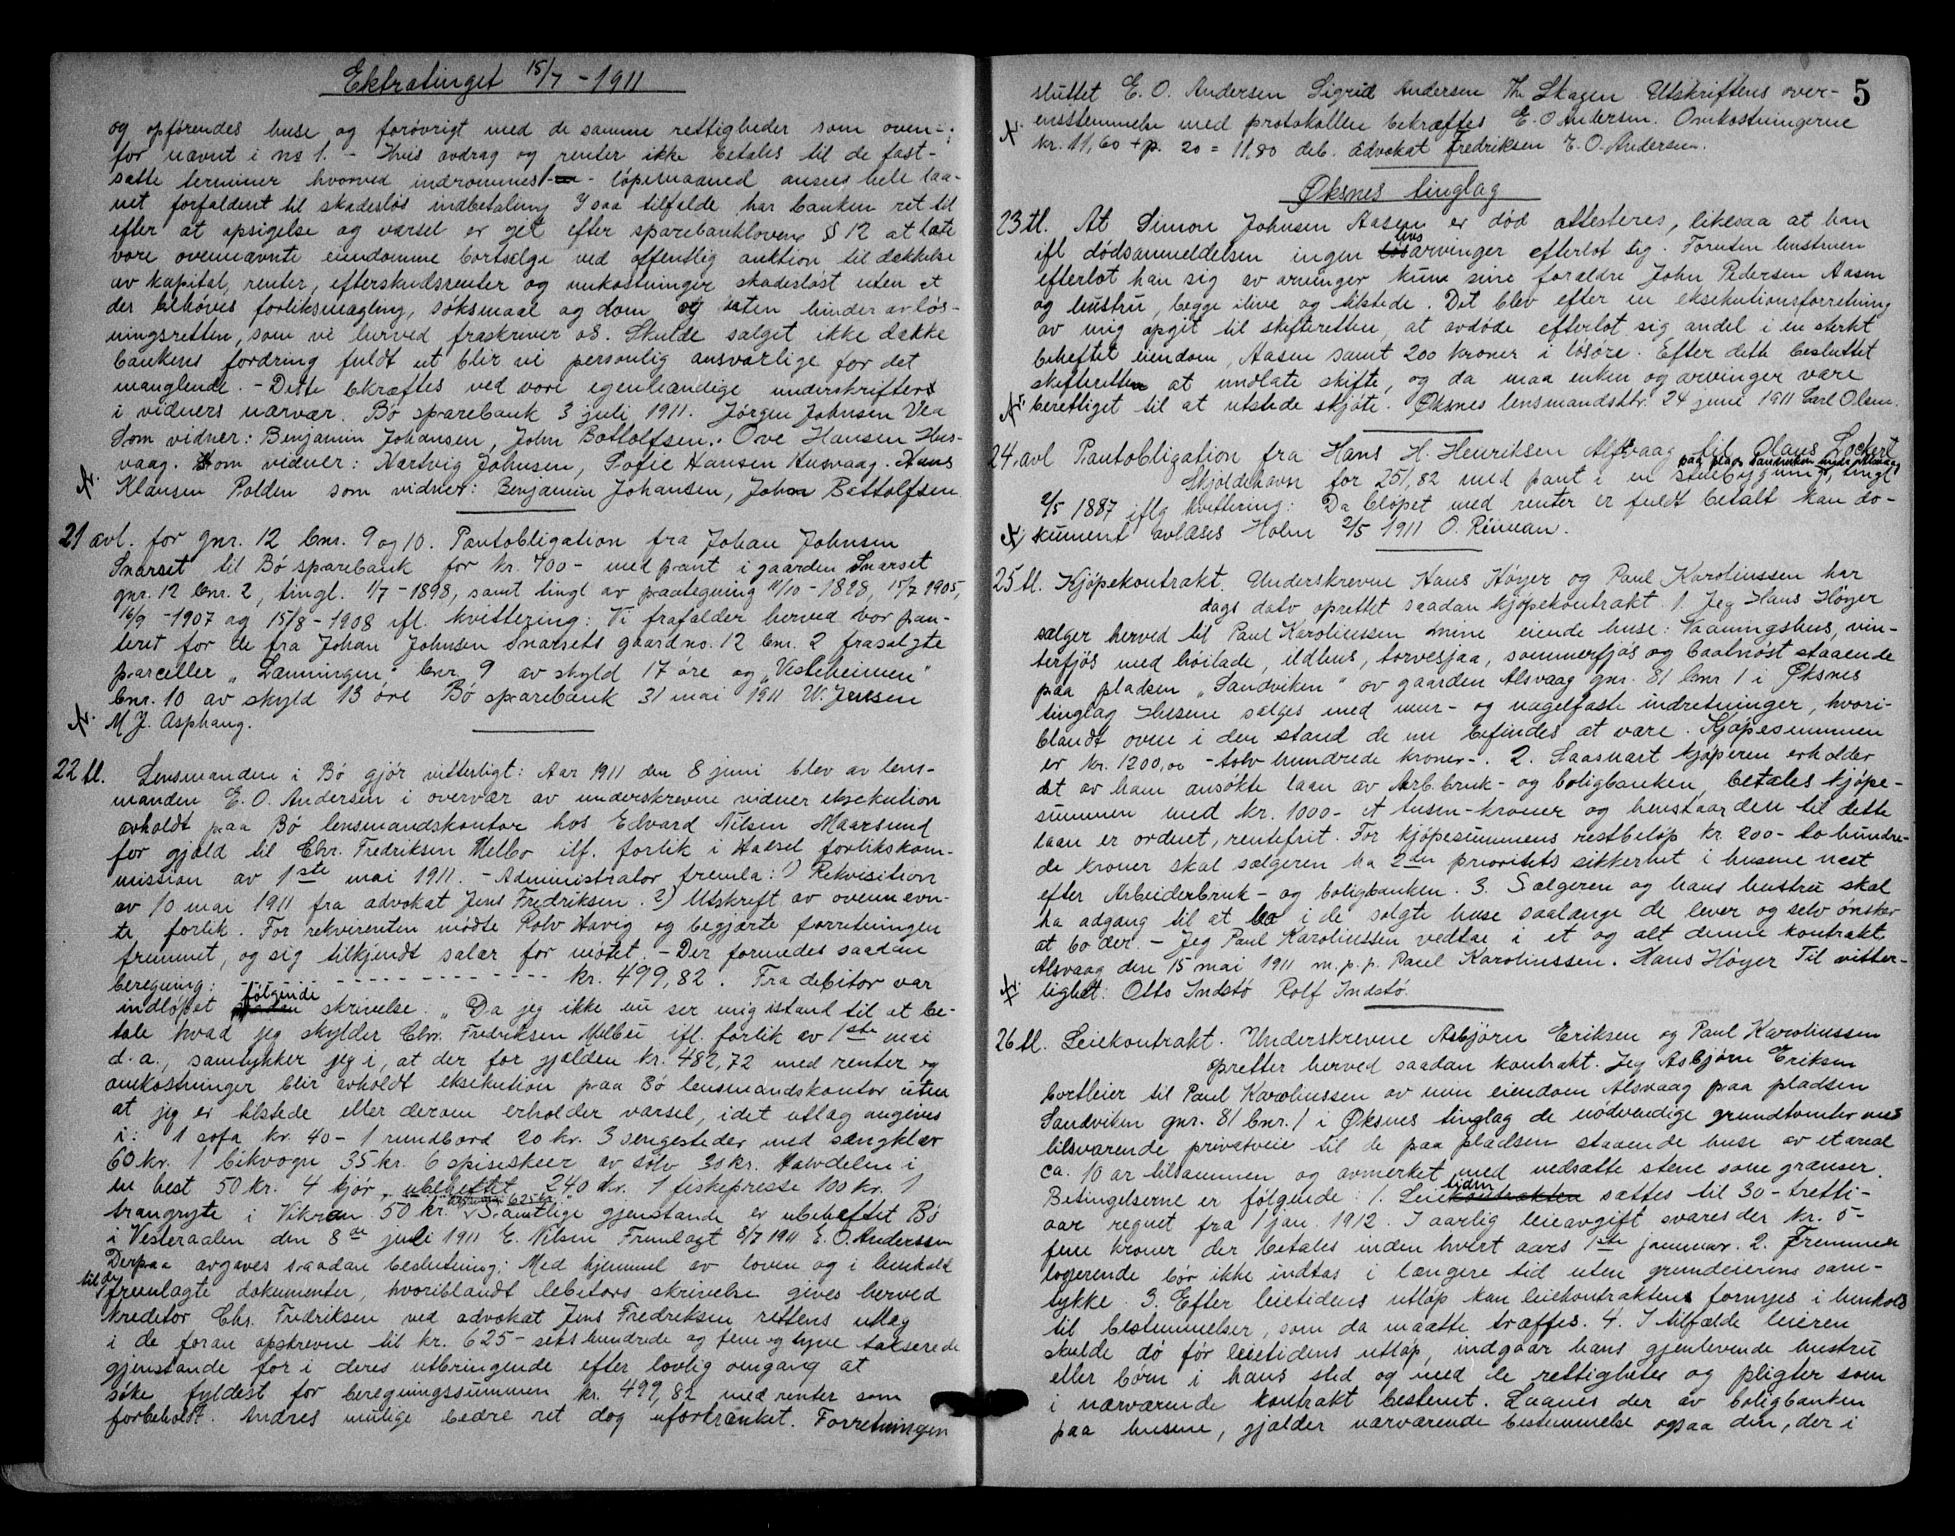 Ektratinget 15/7 - 1911
og opførendes huse og forøvrigt med de samme rettigheder som oven-
for nævnt i no 1. - Hvis avdrag og renter ikke betales til de fast-
satte terminer hvorved indrømmes løpemaaned ansees hele laa-
net forfaldent til skadesløs indbetaling I saa tilfælde har banken ret til
efter at opsigelse og varsel er git efter sparebankloven § 12 at late
vore ovennævnte eiendomme bortsælge ved offentlig auktion til dækkelse
av kapital, renter, efterskudsrenter og omkostninger skadesløst uten at
der behøves forliksmægling, søksmaal og dom og uten hinder av løs-
ningsretten, som vi herved fraskriver os. Skulde salget ikke dække
bankens fordring fuldt ut blir vi personlig ansvarlige for det
manglende. - Dette bekræftes ved vore egenhændige underskrifter
i vidners nærvær. Bø sparebank 3 juli 1911. Jørgen Johnsen Vea
Som vidner: Benjamin Johansen, John Bottolfsen. Ove Hansen Hus-
vaag. Som vidner: Hartvig Johnsen, Sofie Hansen Husvaag. Hans
Klausen Polden som vidner: Benjamin Johansen, John Bottolfsen
21 avl. for gnr. 12 bnr. 9 og 10. Pantobligation fra Johan Johnsen
Snarset til Bø sparebank for kr. 700- med pant i gaarden Snarset
gnr. 12 bnr. 2, tingl. 1/7 - 1898, samt tingl av paategning 11/10 - 1898, 15/7 1905,
16/9 - 1907 og 15/8 - 1908 ifl. kvittering: Vi frafalder herved vor pan-
teret for de fra Johan Johnsen Snarsets gaard no. 12 bnr. 2 frasalgte
parceller „Lænningen" bnr. 9 av skyld 17 øre og „Vestheimen"
bnr. 10 av skyld 13 øre Bø sparebank 31 mai 1911 W. Jentsen
M J. Asphaug.
22 tl. Lensmanden i Bø gjør vitterligt: Aar 1911 den 8 juni blev av lens-
manden E. O. Andersen i overvær av underskrevne vidner eksekution
avholdt paa Bø lensmandskontor hos Edvard Nilsen Maarsund
for gjæld til Chr. Fredriksen Melbo ifl. forlik i Hadsel forlikskom-
mission av 1ste mai 1911. - Administrator fremla: 1) Rekvisition
av 10 mai 1911 fra advokat Jens Fredriksen. 2) Utskrift av ovennævn-
te forlik. For rekvirenten møtte Rolv Havig og begjærte forretningen
fremmet, og sig tilkjendt salær for møtet. - Der formedes saadan
beregning: - - - - - - - - - kr. 499,82. Fra debitor var
indløpet følgende skrivelse. „Da jeg ikke nu ser mig istand til at be-
tale hvad jeg skylder Chr. Fredriksen Melbu ifl. forlik av 1ste mai
d. a., samtykker jeg i, at der for gjælden kr. 482,72 med renter og
omkostninger blir avholdt eksekution paa Bø lensmandskontor uten
at jeg er tilstede eller derom erholder varsel, idet utlæg angives
i: 1 sofa kr. 40 - 1 rundbord 20 kr. 3 sengesteder med sængklær
60 kr. 1 bikvogn 35 kr. 6 spiseskeer av sølv 30 kr. Halvdelen i
en hest 50 kr. 4 kjør ubeheftet 240 kr. 1 fiskepresse 100 kr. 1
trangryte i Vikran 50 kr. tilsammen 625 kr. Samtlige gjenstande er ubeheftet Bø
i Vesteraalen den 8de juli 1911 E. Nilsen Fremlagt 8/7 1911 E. O. Anderssen
Derpaa avgaves saadan beslutning: Med hjemmel av loven og i henhold
til de fremlagte dokumenter, hvoriblandt debitors skrivelse gives herved
kreditor Chr. Fredriksen ved advokat Jens Fredriksen rettens utlæg
i de foran opskrevne til kr. 625 - sekshundrede og fem og tyve takserede
gjenstande for i deres utbringende efter lovlig omgang at
søke fyldest for beregningssummen kr. 499,82 med renter som
forbeholdt. Andres mulige bedre ret dog uforkrænket. Forretningen
5
sluttet E. O. Andersen Sigrid Andersen Th. Skagen Utskriftens over-
ensstemmelse med protokollen bekræftes E. O Andersen. Omkostningerne
kr. 11,60 + p. 20 = 11,80 deb. advokat Fredriksen E. O. Andersen.
Øksnes tinglag
23 tl. At Simon Johnsen Aasen er død attesteres, likesaa at han
ifl dødsanmeldelsen ingen livsarvinger efterlot sig. Foruten hustruen
efterlot han sig av arvinger kun sine forældre John Pedersen Aasen
og hustru, begge ilive og tilstede. Det blev efter en eksekutionsforretning
av mig opgit til skifteretten, at avdøde efterlot sig andel i en sterkt
beheftet eiendom, Aasen samt 200 kroner i løsøre. Efter dette besluttet
skifteretten at undlate skifte, og da maa enken og arvinger være
berettiget til at utstede skjøte. Øksnes lensmandsktr. 24 juni 1911 Carl Olsen.
24. avl Pantobligation fra Hans H. Henriksen Alfsvaag til Olaus Lockert
Skjoldehavn for 251,82 med pant i en stuebygning paa plads Sandviken under Alsvaag, tingl
2/5 1887 iflg kvittering: Da beløpet med renter er fuldt betalt kan do-
kument avlæses Holm 2/5 1911 O. Rinnan.
25 tl. Kjøpekontrakt. Underskrevne Hans Høyer og Paul Karoliussen har
dags dato oprettet saadan kjøpekontrakt. 1. Jeg Hans Høyer
sælger herved til Paul Karoliussen mine eiende huse: Vaaningshus, vin-
terfjøs med høilade, ildhus, torvesjaa, sommerfjøs og baatnøst staaende
paa pladsen „Sandviken" av gaarden Alsvaag gnr. 81 bnr 1 i Øksnes
tinglag Husene sælges med mur- og nagelfaste indretninger, hvori-
blandt ovne i den stand de nu befindes at være. Kjøpesummen
er kr. 1200,00 - tolv hundrede kroner -. 2. Saasnart kjøperen erholder
det av ham ansøkte laan av Arb.bruk- og boligbanken, betales kjøpe-
summen med kr. 1000.- et tusen-kroner og henstaar den til dette
laan er ordnet, rentefrit. For kjøpesummens restbeløp kr 200 - to hundre-
de kroner skal sælgeren ha 2den prioritets sikkerhet i husene næst
efter Arbeiderbruk- og boligbanken. 3. Sælgeren og hans hustru skal
ha adgang til at bo i de solgte huse saalænge de lever og selv ønsker
at bo der. - Jeg Paul Karoliussen vedtar i et og alt denne kontrakt.
Alsvaag den 15 mai 1911 m. p. p. Paul Karoliussen. Hans Høyer Til vitter-
lighet: Otto Indstø Rolf Indstø.
26 tl. Leiekontrakt. Underskrevne Asbjørn Eriksen og Paul Karoliussen
opretter herved saadan kontrakt. Jeg Asbjørn Eriksen
bortleier til Paul Karoliussen av min eiendom Alsvaag paa pladsen
Sandviken gnr. 81 bnr. 1 i Øksnes tinglag de nødvendige grundtomter med
tilsvarende privatveie til de paa pladsen staaende huse av et areal
ca. 10 ar tilsammen og avmerket med nedsatte stene som grænser.
Betingelserne er følgende: 1. Leietiden sættes til 30 - tretti-
aar regnet fra 1 jan. 1912. I aarlig leieavgift svares der kr. 5-
fem kroner der betales inden hvert aars 1ste januar. 2. Fremmen
logerende bør ikke indtas i længere tid uten grundeierens sam-
tykke. 3. Efter leietidens utløp kan leiekontrakten fornyes i henhold
til bestemmelser, som da maatte træffes. 4. I tilfælde leieren
skulde dø før leietidens utløp, indgaar hans gjenlevende hustru
eller børn i hans sted og med de rettigheter og pligter som
i nærværende kontrakt bestemt. Laanes der av boligbanken
paa husene, gjælder nærværende bestemmelse ogsaa den, der i